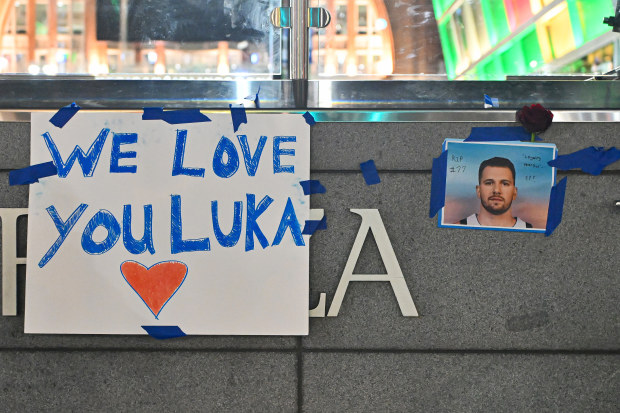 WE LOVE
YOU LUKA
LA
RIP
77